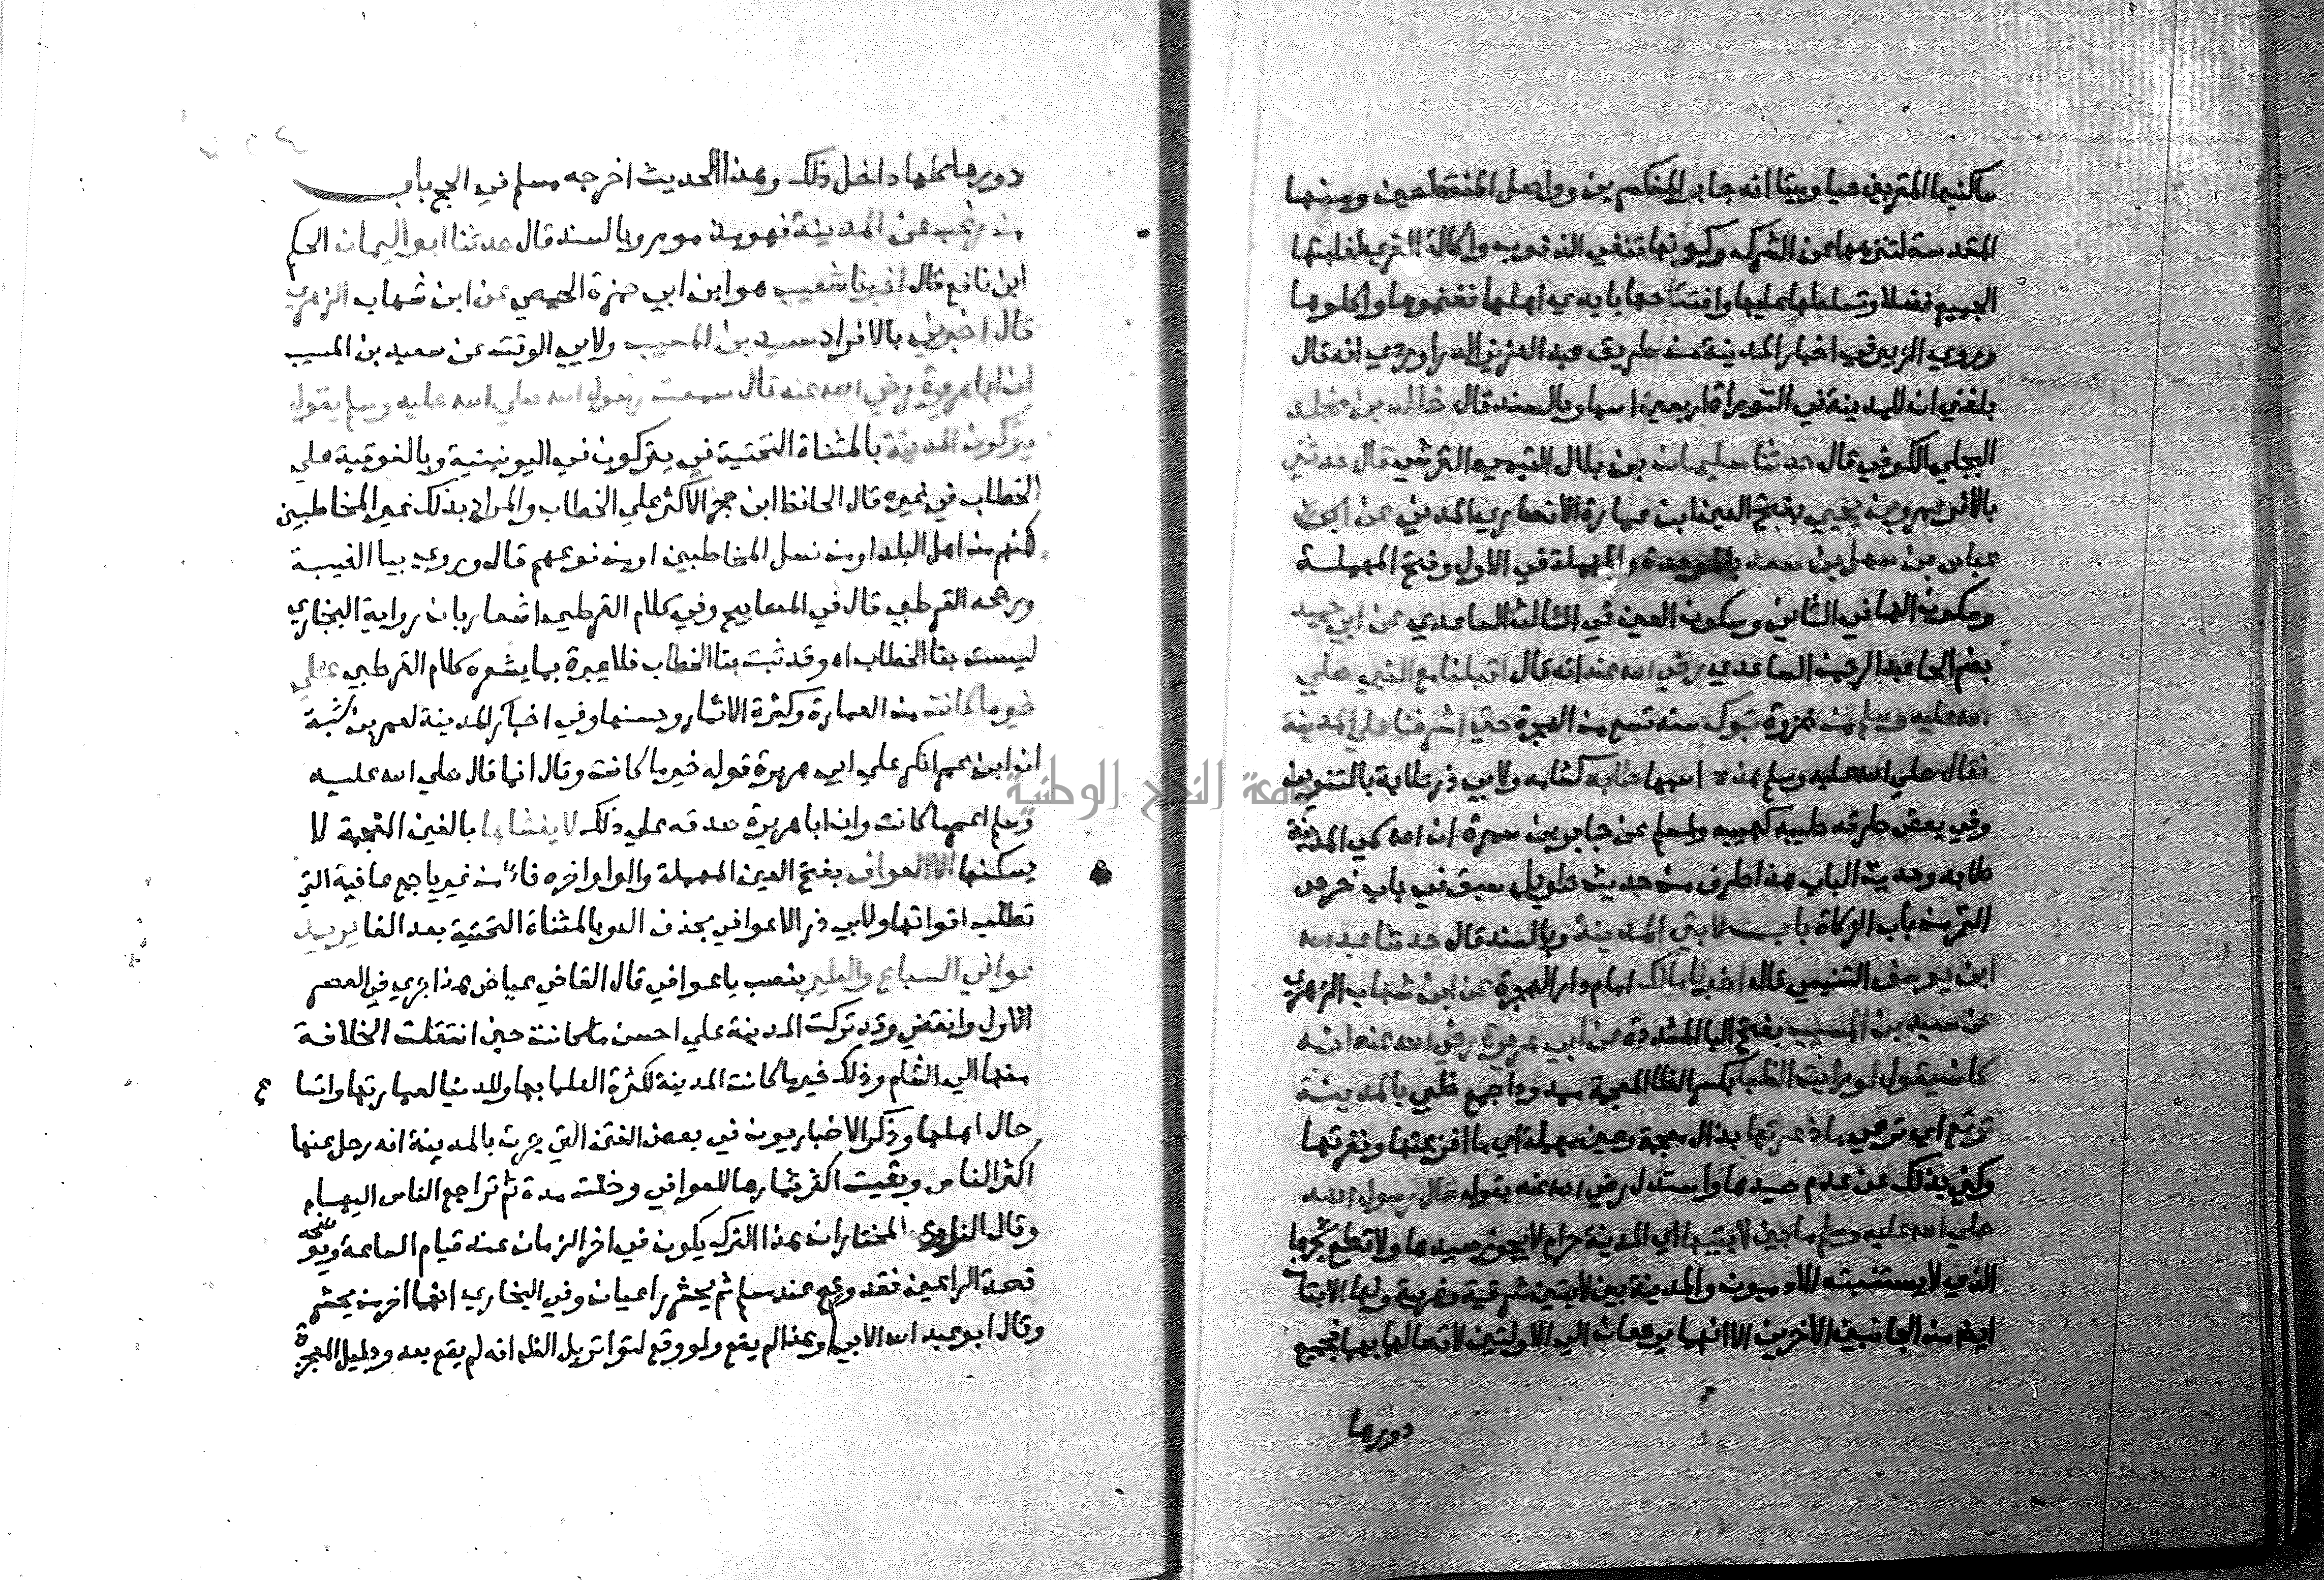 ساكنيها المقربين حيا وميتا انه جابر المنكسرين وواصل المنقطعين ومنها
المقدسة لتنزهها عن الشرك وكونها تنفي الذنوب واكالة القرى لغلبتها
الجميع فضلا وتسلطها عليها وافتتاحها بايدي اهلها فغنموها واكلوها
وروي الزبير في اخبار المدينة من طريق عبد العزيز الدراوردي انه قال
بلغني ان للمدينة في التوراة اربعين اسما وبالسند قال خالد بن مخلد
البجلي الكوفي قال حدثنا سليمان بن بلال التيمي القرشي قال حدثني
بالافراد عمرو بن يحيى بفتح العين ابن عمارة الانصاري المدني عن
عباس بن سهل بن سعد بالموحدة والمهملة في الاول وفتح المهملة
وسكون الها في الثاني وسكون العين في الثالث الساعدي عن ابي حميد
بضم الحا عبد الرحمن الساعدي رضي الله عنه انه قال اقبلنا مع النبي صلي
الله عليه وسلم من غزوة تبوك سنة تسع من الهجرة حتي اشرفنا علي المدينة
فقال صلي الله عليه وسلم هذه اسمها طابه كشامه ولابي ذر طابة بالتنوين
وفي بعض طرقه طيبه كهيبه ولمسلم عن جابر بن سمرة ان الله سمى المدينة
طابه وحديث الباب هذا طرف من حديث طويل سبق في باب خرص
التمر من باب الزكاة باب لابتي المدينة وبالسند قال حدثنا عبد الله
ابن يوسف التنيسي قال اخبرنا مالك امام دار الهجرة عن ابن شهاب الزهري
عن سعيد بن المسيب بفتح اليا المشددة عن ابي هريرة رضي الله عنه انه
كان يقول لو رايت الظبا بكسر الظا المعجمة ممدودا جمع ظبي بالمدينة
ترتع اي ترعي ما ذعرتها بذال معجمة وعين مهملة اي ما افزعتها ونفرتها
وكني بذلك عن عدم صيدها واستدل رضي الله عنه بقوله قال رسول الله
صلي الله عليه وسلم ما بين لابتيها اي المدينة حرام لا يجوز صيدها ولا قطع شجرها
الذي لا يستنبته الادميون والمدينة بين لابتين شرقية وغربية ولها لابتان
ايضا من الجانبين الاخرين الا انهما يرجعان الي الاولتين لاتصالهما بهما فجميع
دورها
دورها كلها داخل ذلك وهذا الحديث اخرجه مسلم في الحج باب
من رغب عن المدينة فهو مذموم وبالسند قال حدثنا ابو اليمان الحكم
ابن نافع قال اخبرنا شعيب هو ابن ابي حمزة الحمصي عن ابن شهاب الزهري
قال اخبرني بالافراد سعيد بن المسيب ولابي الوقت عن سعيد بن المسيب
ان ابا هريرة رضي الله عنه قال سمعت رسول الله صلي الله عليه وسلم يقول
يتركون المدينة بالمثناة التحتية في يتركون في اليونينية وبالفوقية علي
الخطاب في غيره قال الحافظ ابن حجر الاكثر علي الخطاب والمراد بذلك غير المخاطبين
لكنهم من اهل البلد او من نسل المخاطبين او من نوعهم قال وروي بيا الغيبة
ورجحه القرطبي قال في المصابيح وفي كلام القرطبي اشعار بان رواية البخاري
ليست بتا الخطاب اه وقد ثبت بتا الخطاب فلا عبرة بما يشعره كلام القرطبي علي
خير ما كانت من العمارة وكثرة الاثمار وحسنها وفي اخبار المدينة لعمر بن شبة
ان ابن عمر انكر علي ابي هريرة قوله خير ما كانت وقال انما قال صلي الله عليه
وسلم اعمر ما كانت وان ابا هريرة صدقه علي ذلك لا يغشاها بالغين المعجمة لا
يسكنها الا العواف بفتح العين المهملة والواو اخره فاء من غير يا جمع عافية التي
تطلب اقواتها ولابي ذر الا عوافي بحذف ال وبالمثناة التحتية بعد الفا يريد
عوافي السباع والطير بنصب يا عوافي قال القاضي عياض هذا جري في العصر
الاول وانقضي وقد تركت المدينة علي احسن ما كانت حين انتقلت الخلافة
منها الي الشام وذلك خير ما كانت المدينة لكثرة العلما بها وللدنيا لعمارتها واتسا
ع
حال اهلها وذكر الاخباريون في بعض الفتن التي جرت بالمدينة انه رحل عنها
اكثر الناس وبقيت اكثر ثمارها للعوافي وخلت مدة ثم تراجع الناس اليها
وقال النووي المختار ان هذا الترك يكون في اخر الزمان عند قيام الساعة ويوضحه
قصة الراعيين فقد وقع عند مسلم ثم يحشر راعيان وفي البخاري انهما اخر من يحشر
وقال ابو عبد الله الابي وهذا لم يقع ولو وقع لتواتر بل الظاهر انه لم يقع بعد ودليل المعجزة